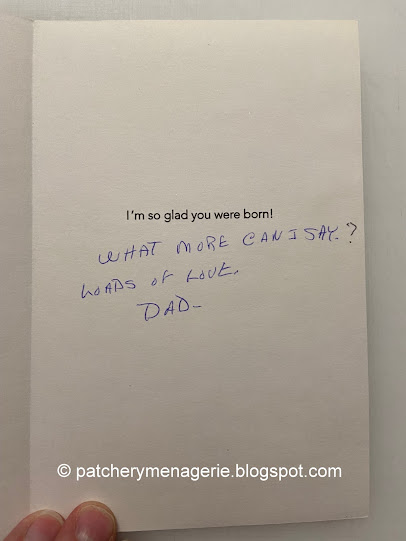 I'm so glad you were born!
WHAT MORE CAN I SAY.?
LOADS OF LOVE.
DAD-
© patcherymenagerie.blogspot.com